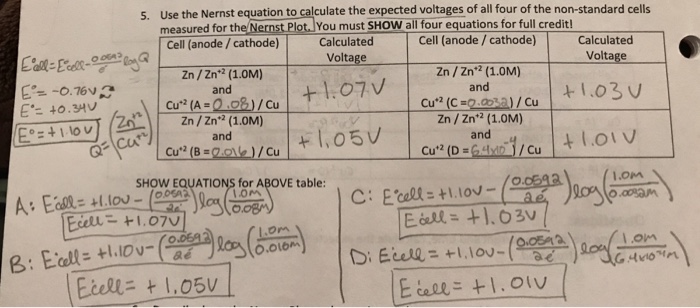 5. Use the Nernst equation to calculate the expected voltages of all four of the non-standard cells
measured for the Nernst Plot. You must SHOW all four equations for full credit!
Cell (anode / cathode) Calculated Voltage Cell (anode / cathode) Calculated Voltage
Zn / Zn+2 (1.0M) and Cu+2 (A = 0.08) / Cu +1.07V Zn / Zn+2 (1.0M) and Cu+2 (C = 0.0032) / Cu +1.03V
Zn / Zn+2 (1.0M) and Cu+2 (B = 0.016) / Cu +1.05V Zn / Zn+2 (1.0M) and Cu+2 (D = 6.4x10-4) / Cu +1.01V
E°cell = E°cell - 0.0592/e- log Q
E° = -0.76V
E° = +0.34V
E° = +1.10V
Q = (Zn+2/Cu+2)
SHOW EQUATIONS for ABOVE table:
A: E°cell = +1.10V - (0.0592/2e-) log (1.0M/0.08M)
Ecell = +1.07V
B: E°cell = +1.10V - (0.0592/2e-) log (1.0M/0.016M)
Ecell = +1.05V
C: E°cell = +1.10V - (0.0592/2e-) log (1.0M/0.0032M)
Ecell = +1.03V
D: Ecell = +1.10V - (0.0592/2e-) log (1.0M/6.4x10-4M)
Ecell = +1.01V